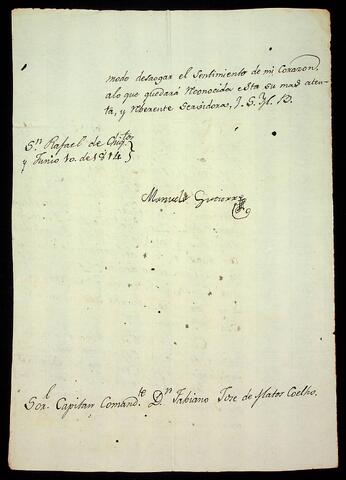 modo desaogar el Sentimiento de mi Corazon,
alo que quedará Reconocida esta su mas aten-
ta, y Reberente Servidora,
Sn. Rafael de Chiqtos
y Junio 10. de 1814
Manuela Gutierrez
Sor. Capitan Comandte. Dn. Fabiano Jose de Matos Coelho.